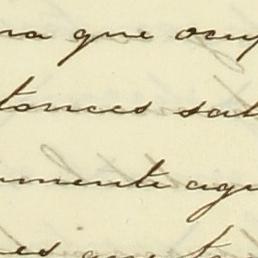 na que ocup
tonces sat
mente agu
es que